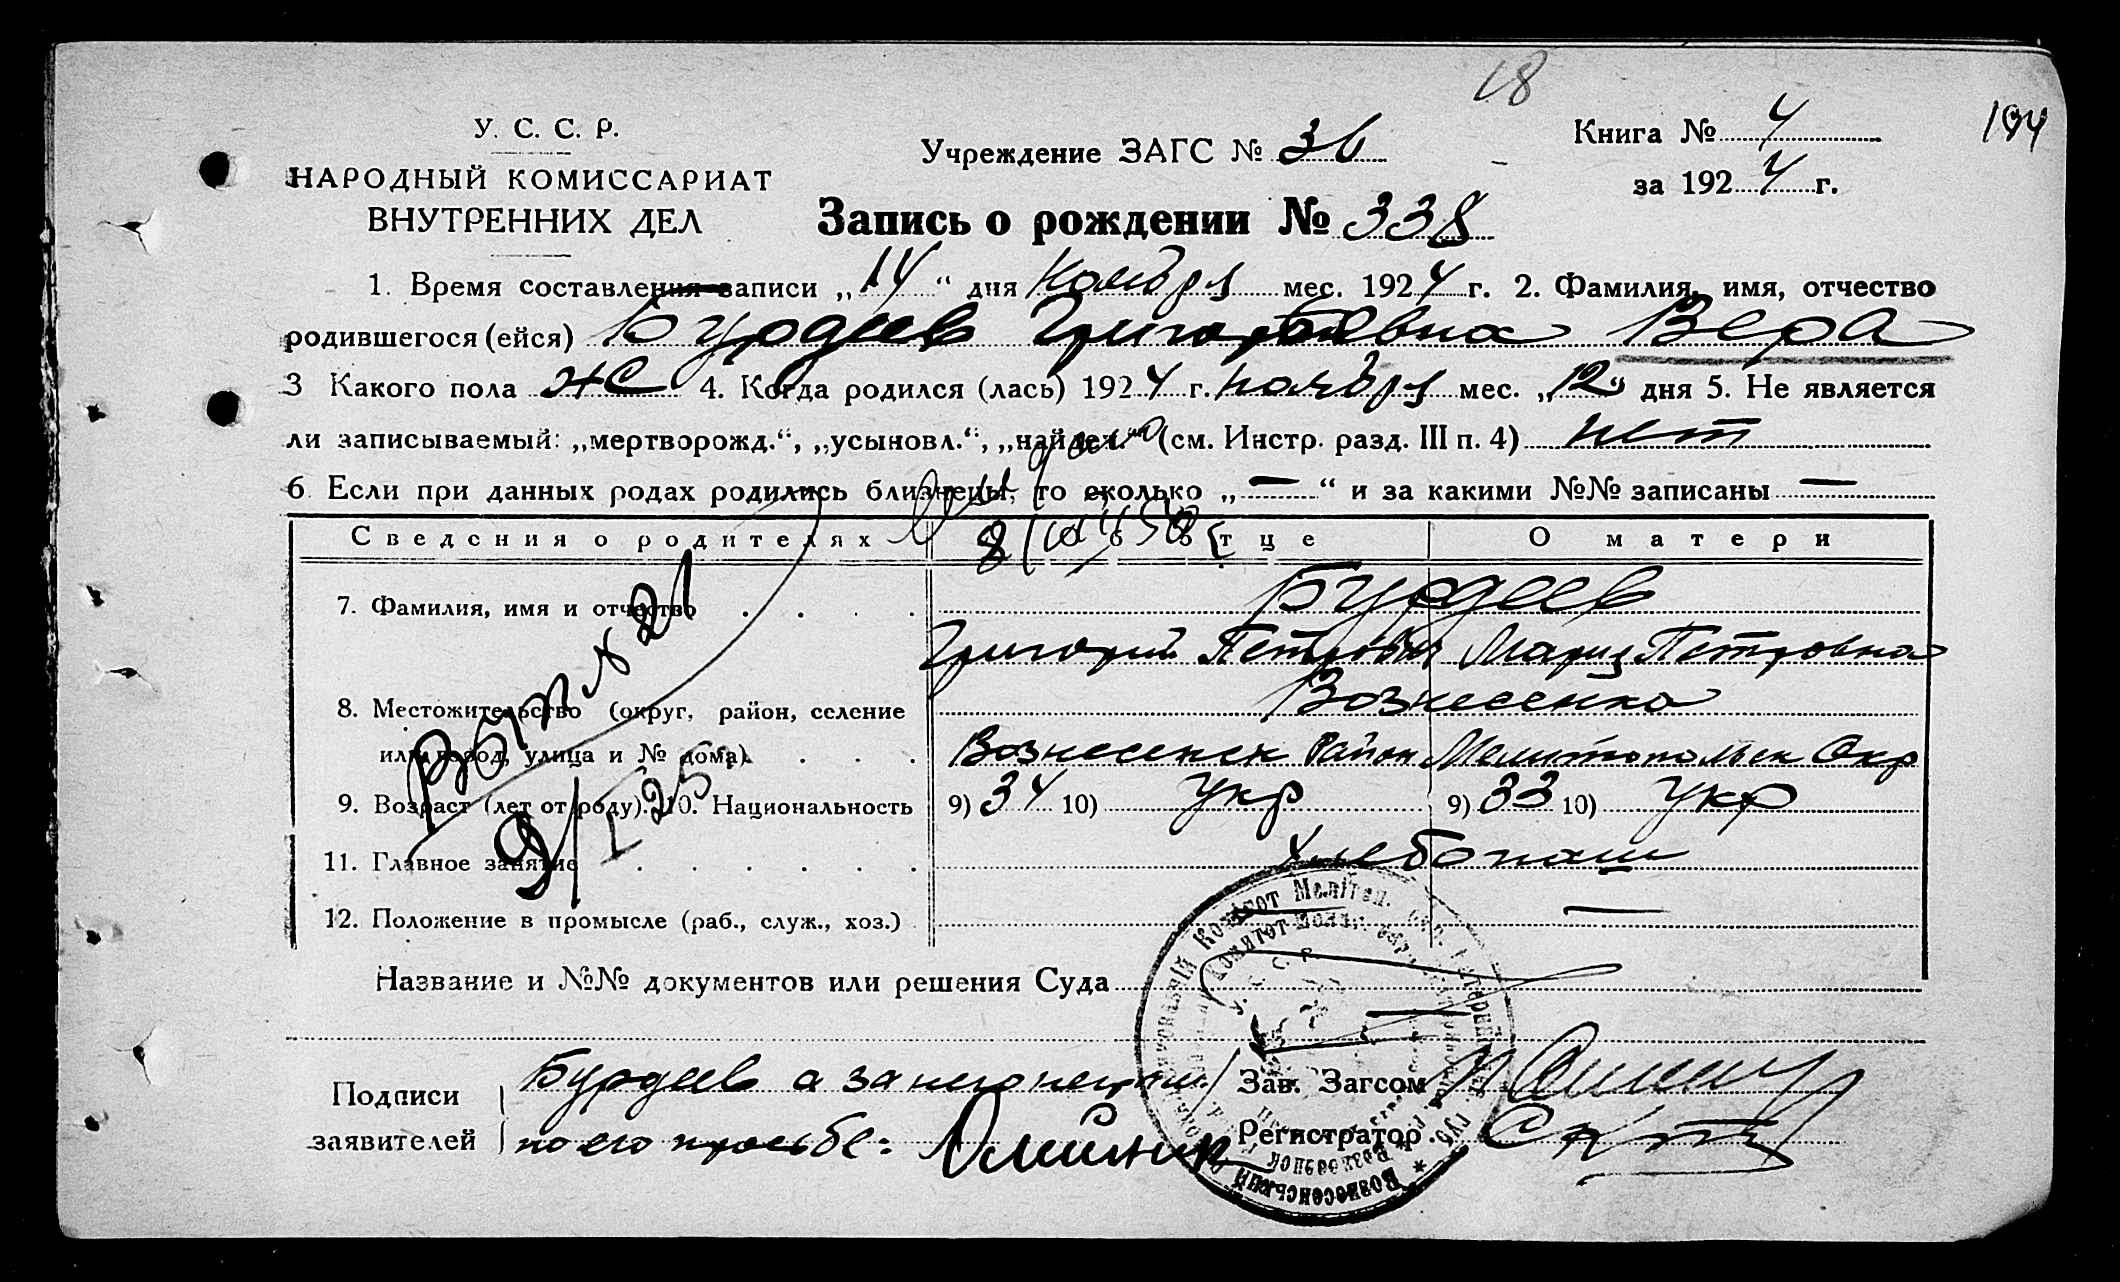 18
У. С. С. Р.
Учреждение ЗАГС № 36
Книга № 4
194
НАРОДНЫЙ КОМИССАРИАТ
ВНУТРЕННИХ ДЕЛ
за 1924 г.
Запись о рождении № 338
1. Время составления записи „14“ дня Ноября мес. 1924 г. 2. Фамилия, имя, отчество
родившегося (ейся) Бурдеев Григорьевна Вера
3 Какого пола ж 4. Когда родился (лась) 1924 г. ноября мес. „12“ дня 5. Не является
ли записываемый: „мертворожд.“, „усыновл.“, „найден.“ (см. Инстр. разд. III п. 4) нет
6 Если при данных родах родились близнецы, то сколько „—“ и за какими №№ записаны —
Сведения о родителях Об отце О матери
7. Фамилия, имя и отчество Бурдеев
Григорий Петрович Мария Петровна
8. Местожительство (округ, район, селение Вознесенка
или город, улица и № дома) Вознесенск Район Мелитопольск Окр
9. Возраст (лет от роду). 10. Национальность 9) 34 10) Укр 9) 33 10) Укр
11. Главное занятие Хлебопаш
12. Положение в промысле (раб., служ., хоз.) —
Название и №№ документов или решения Суда
Подписи Бурдеев а за него негр Зав. Загсом
заявителей по его просьбе: Олейник Регистратор